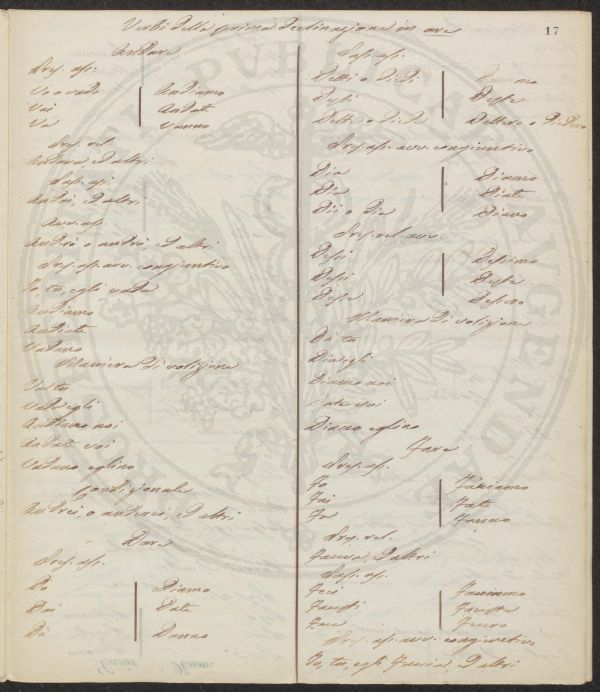 17
Verbi della prima declinazione in are
Andare
Pres. ass.
Vo o vado Andiamo
Vai Andate
Va Vanno
Pres. rel.
Andava, e d'altri
Pass. ass.
Andai, e d'altri
Avv. ass.
Andrò o anderò, e d'altri
Pres. ass. avv. congiuntivo
Io, tu, egli vada
Andiamo
Andiate
Vadano
Maniera di volizione
Va tu
Vada egli
Andiamo noi
Andate voi
Vadano eglino
Condizionale
Andrei, o anderei, e d'altri
Dare
Pres. ass.
Do Diamo
Dai Date
Dà Danno
Pass. ass.
Detti o Diedi
Desti Deste
Dette o Diede Dettero o Diedero
Pres. ass. avv. congiuntivo
Dia Diamo
Dia Diate
Dii o Dia Diano
Pres. rel. avv.
Dessi Dessimo
Dessi Deste
Desse Dessero
Maniera di volizione
Dà tu
Dia egli
Diamo noi
Date voi
Diano eglino
Fare
Pres. ass.
Fo Facciamo
Fai Fate
Fa Fanno
Pres. rel.
Faceva, e d'altri
Pass. ass.
Feci Facemmo
Facesti Faceste
Fece Fecero
Pres. ass. avv. congiuntivo
Io, tu, egli Faccia, e d'altri
PUBLICA
AUGENDA